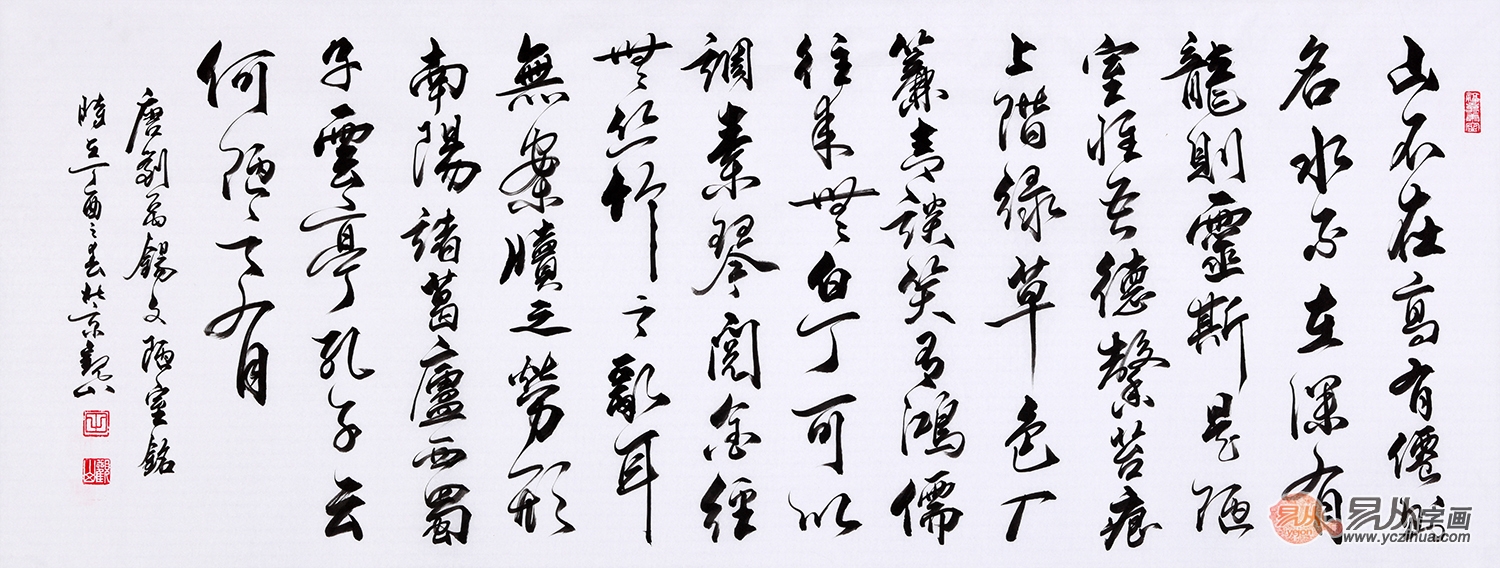 山不在高有僊則
名水不在深有
龍則靈斯是陋
室惟吾德馨苔痕
上階緑草色入
簾青談笑有鴻儒
往來無白丁可以
調素琴閱金經
無丝竹之亂耳
無案牘之勞形
南陽諸葛廬西蜀
子雲亭孔子云
何陋之有
唐劉禹錫文陋室銘
時在丁酉之春於京觀山
易从字画
www.yczihua.com